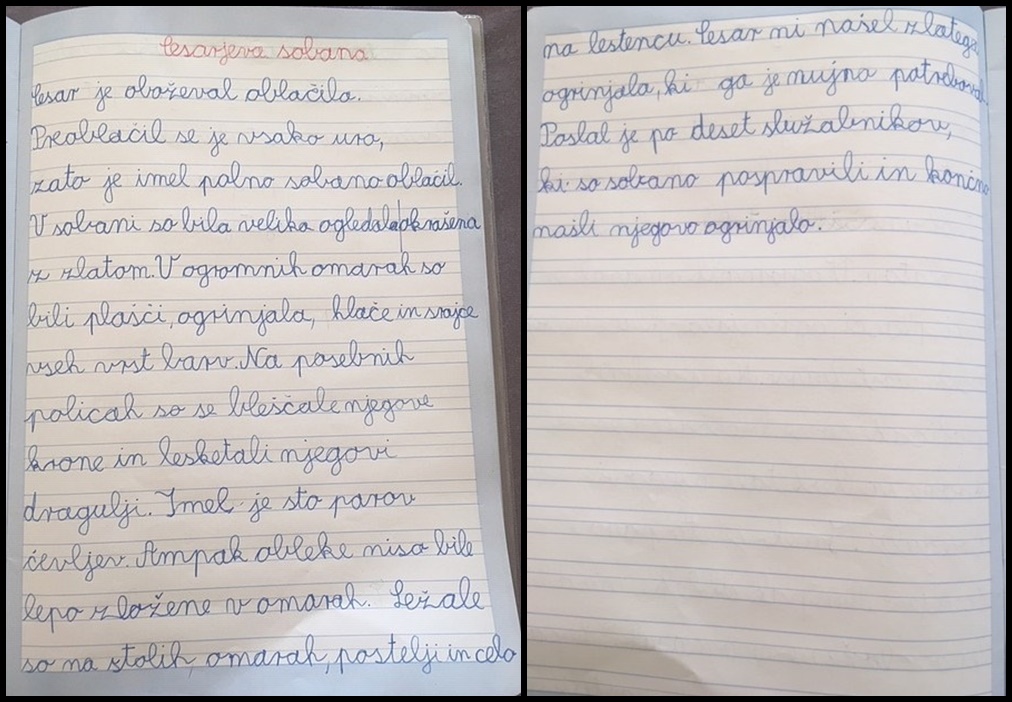 Cesarjeva sobana
Cesar je oboževal oblačila.
Preoblačil se je vsako uro,
zato je imel polno sobano oblačil.
V sobani so bila velika ogledala okrašena
z zlatom. V ogromnih omarah so
bili plašči, ogrinjala, hlače in srajce
vseh vrst barv. Na posebnih
policah so se bleščale njegove
krone in lesketali njegovi
dragulji. Imel je sto parov
čevljev. Ampak obleke niso bile
lepo zložene v omarah. Ležale
so na stolih, omarah, postelji in celo
na lestencu. Cesar ni našel zlatega
ogrinjala, ki ga je nujno potreboval.
Poslal je po deset služabnikov,
ki so sobano pospravili in končno
našli njegovo ogrinjalo.